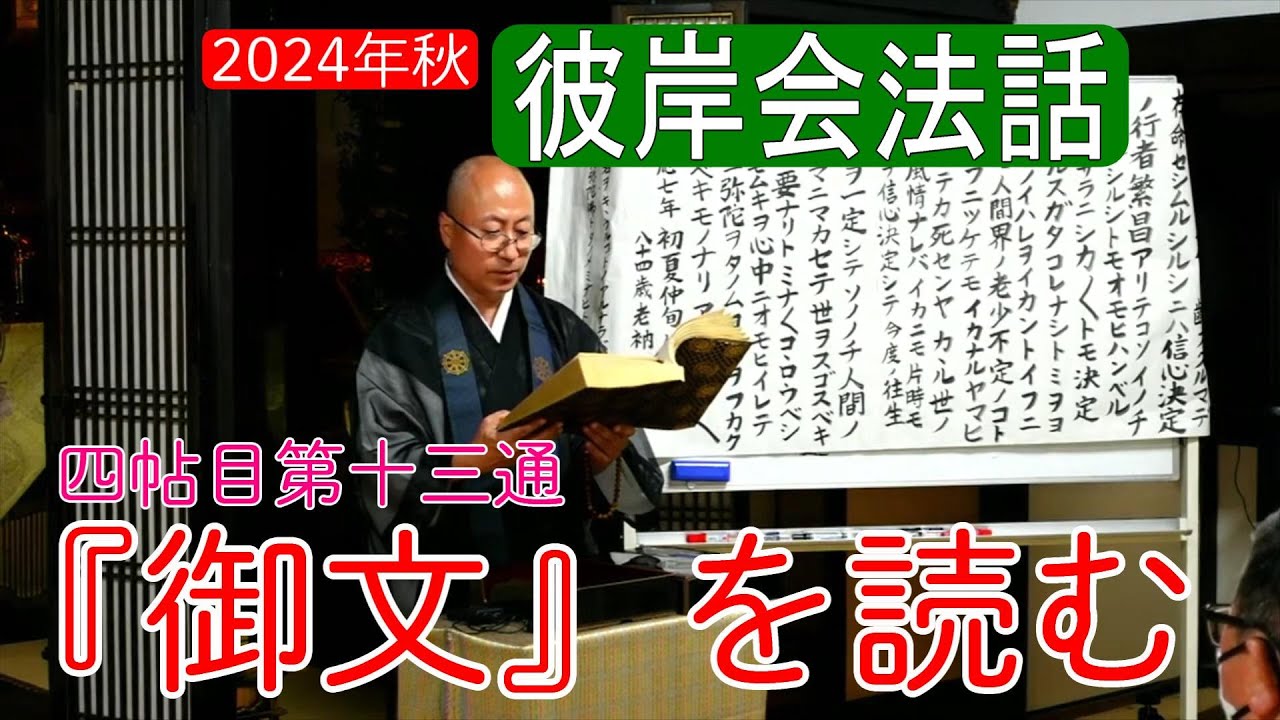 2024年秋
彼岸会法話
クルマテ
在命セシムルシルシニハ信心決定
ノ行者繁昌アリテコソイノチ
シルシトモオモヒハンベル
サラニシカ〱トモ決定
ルスガタコレナシトミヲヨ
ノイハレヲイカントイフニ
人間界ノ老少不定ノコト
フニツケテモイカナルヤマヒ
テカ死センヤカヽル世ノ
風情ナレバイカニモ片時モ
信心決定シテ今度ノ往生
ヲ一定シテソノノチ人間ノ
マニマカセテ世ヲスゴスベキ
要ナリトミナ〱コヽロウベシ
ムキヲ心中ニオモヒイレテ
弥陀ヲタノム ヲフカク
ベキモノナリ ア
七年 初夏仲旬
八十四歳老衲
四帖目第十三通
『御文』を読む